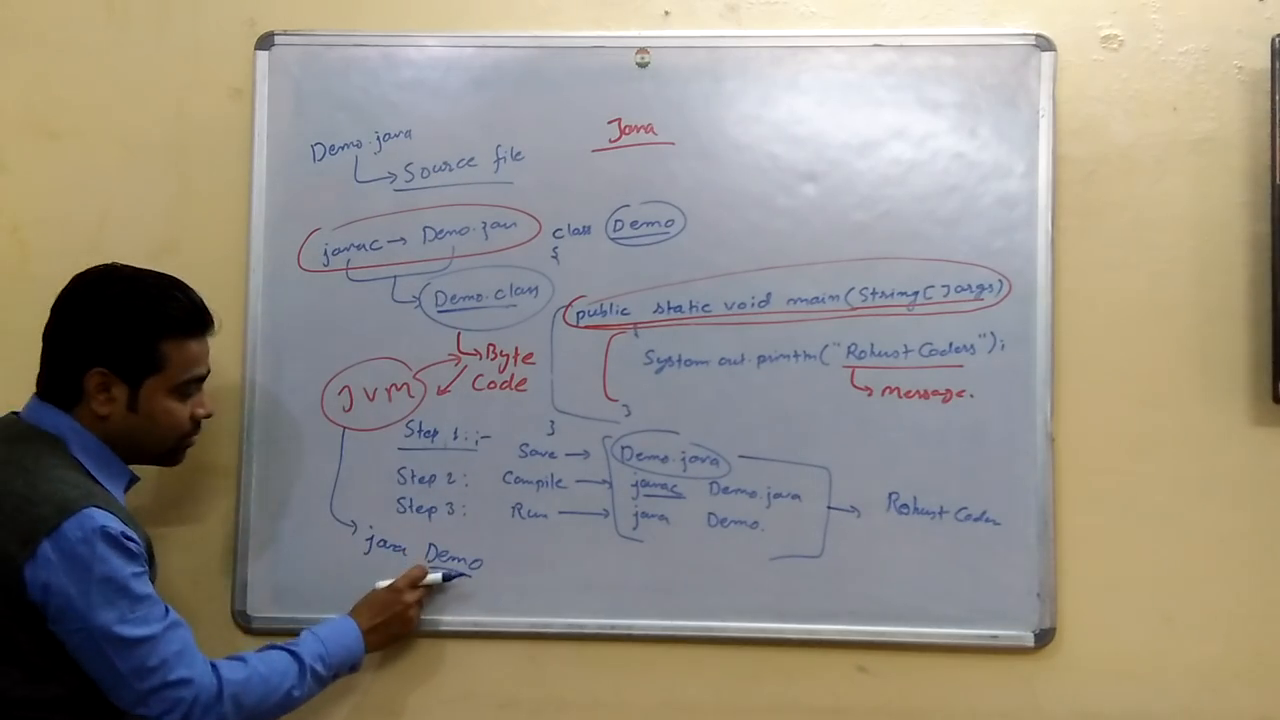 Java
Demo.java
Source file
javac → Demo.java
class Demo
{
Demo.class
public static void main(String[]args)
{
System.out.println("Robust Coders");
Message.
}
}
Byte
Code
JVM
Step 1:-
Save → Demo.java
Step 2: Compile → javac Demo.java
Step 3: Run → java Demo.
Robust Coder
java Demo